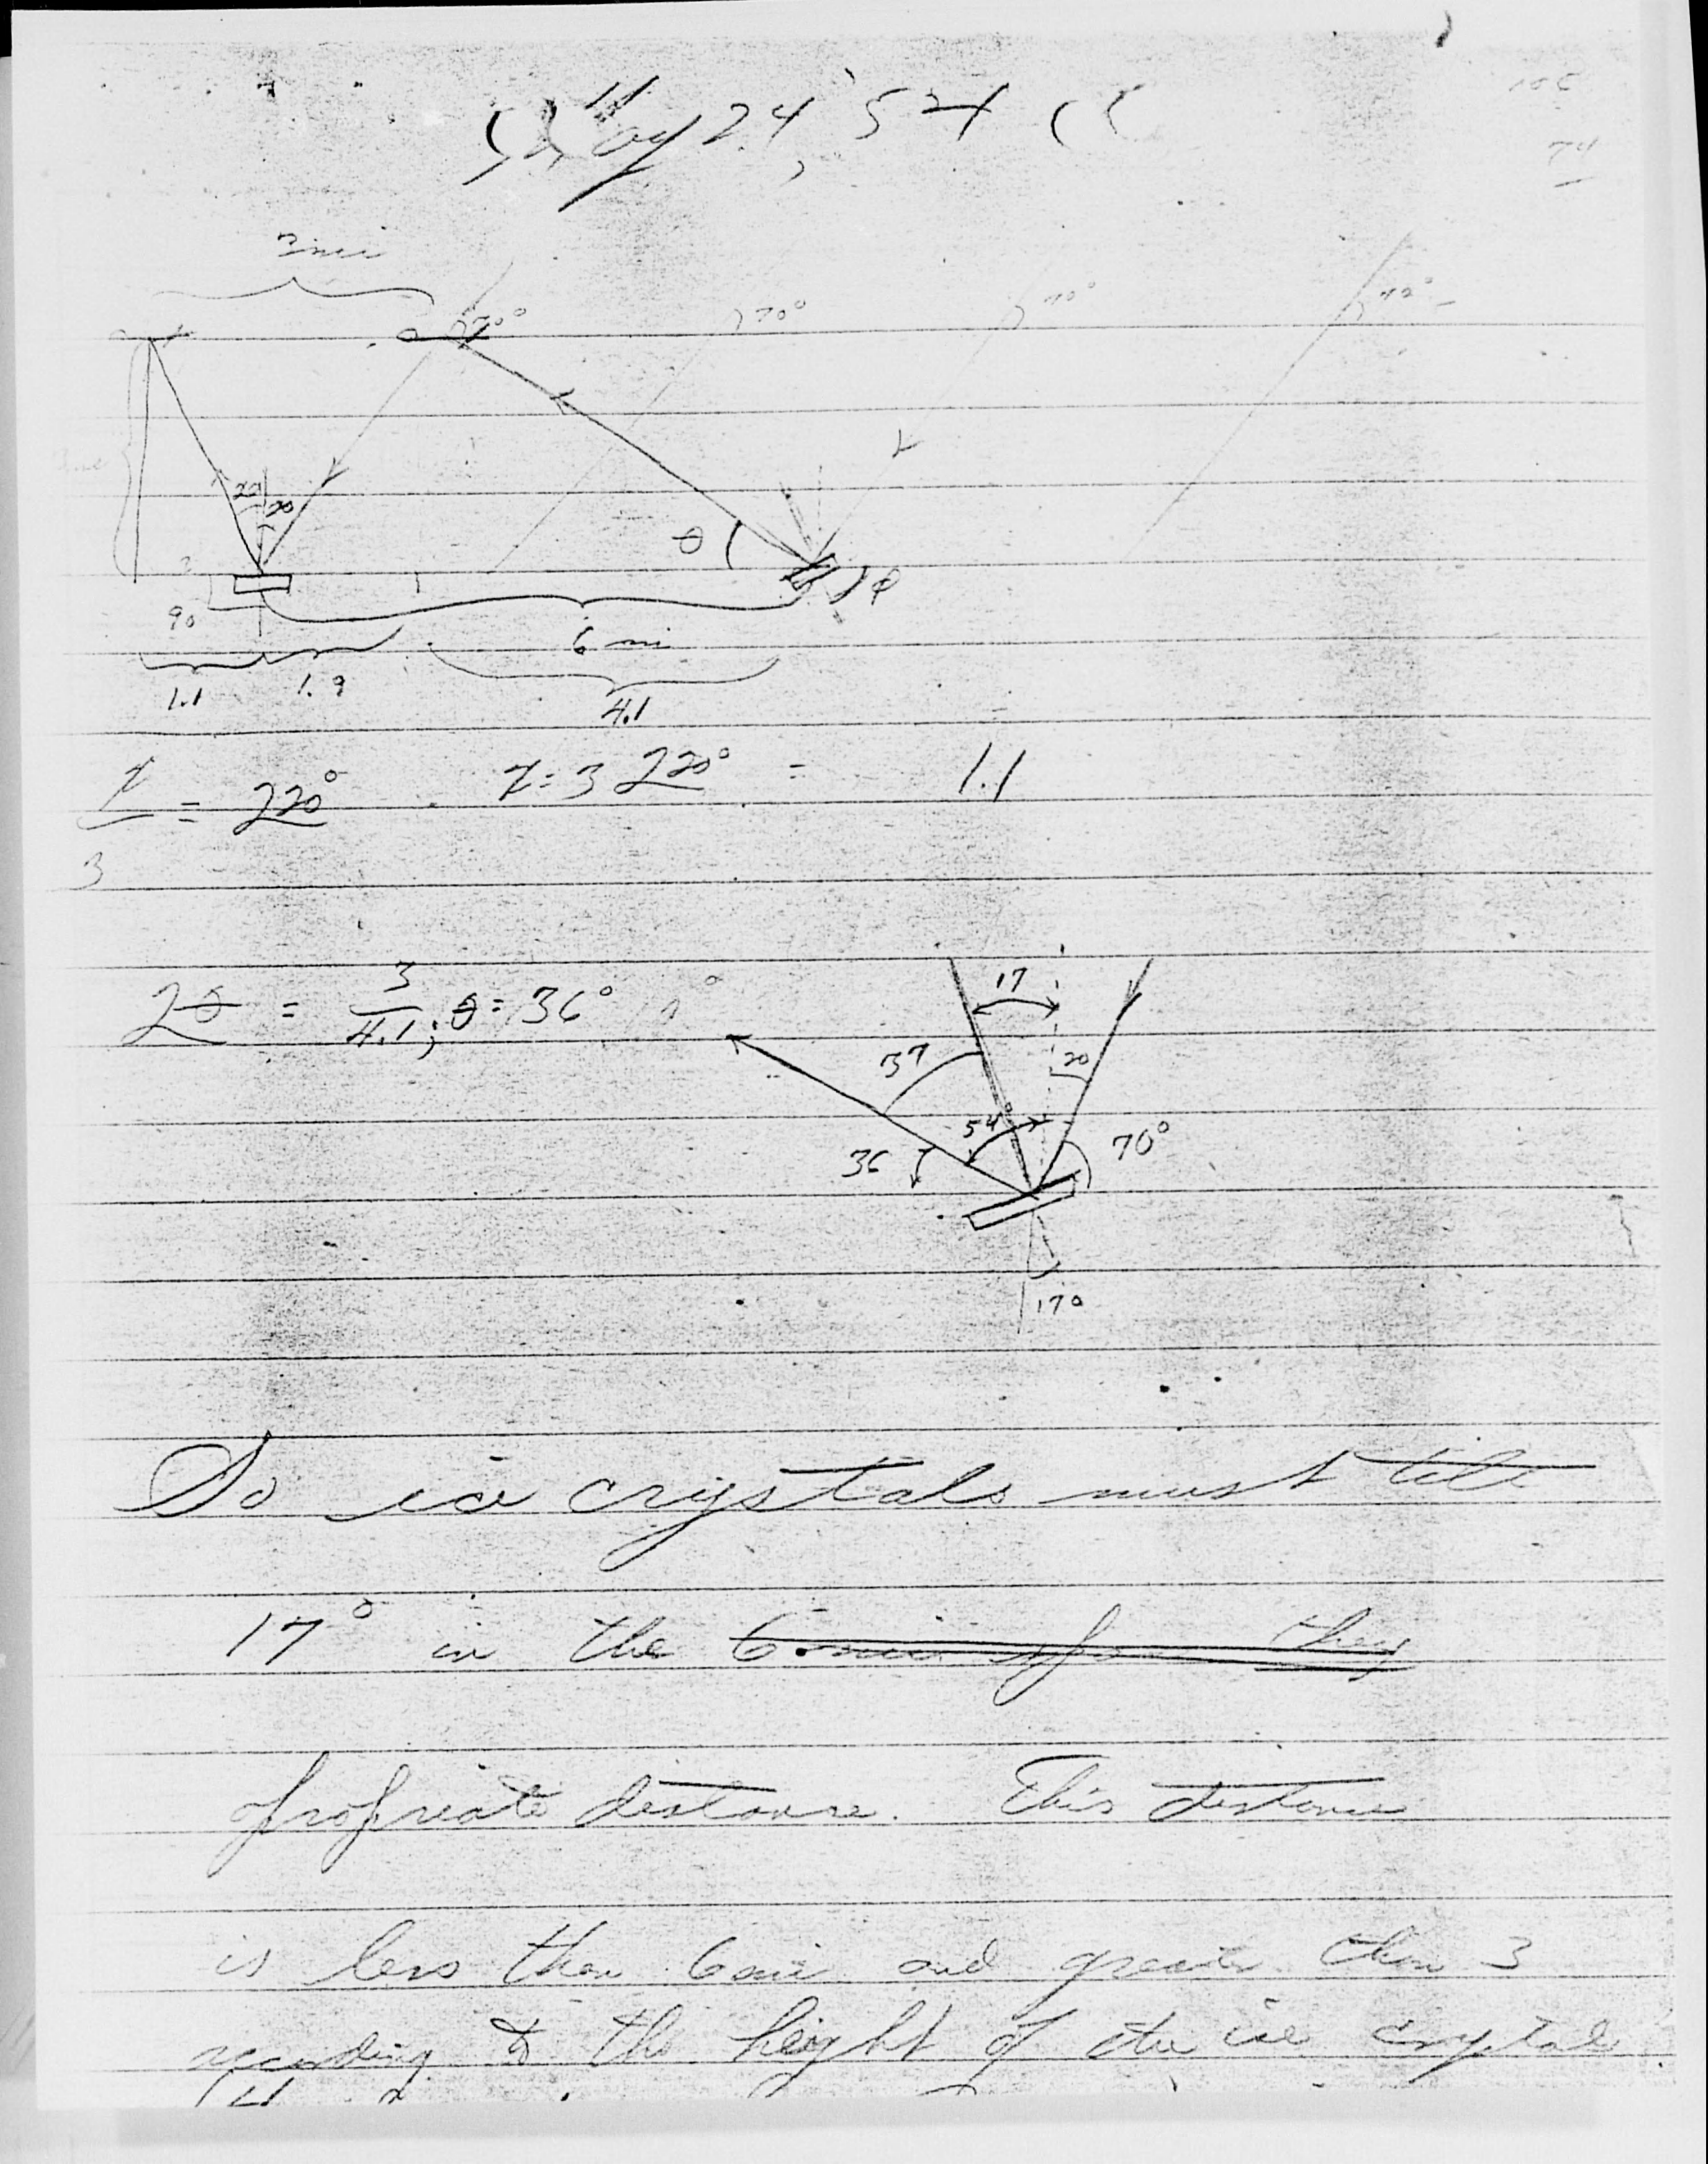 May 24, 54
3mi
70°
70°
70°
20
20
θ
φ
90
6 mi
1.1 1.9
4.1
= 220°
= 1.1
3
2θ = 3/4.1; θ = 36°
17
37
20
54°
36
70°
170
So ice crystals must tilt
17° in the 6 mi for they
propriate distance. This distance
is less than 6 mi and greater than 3
according to the height of the ice crystals